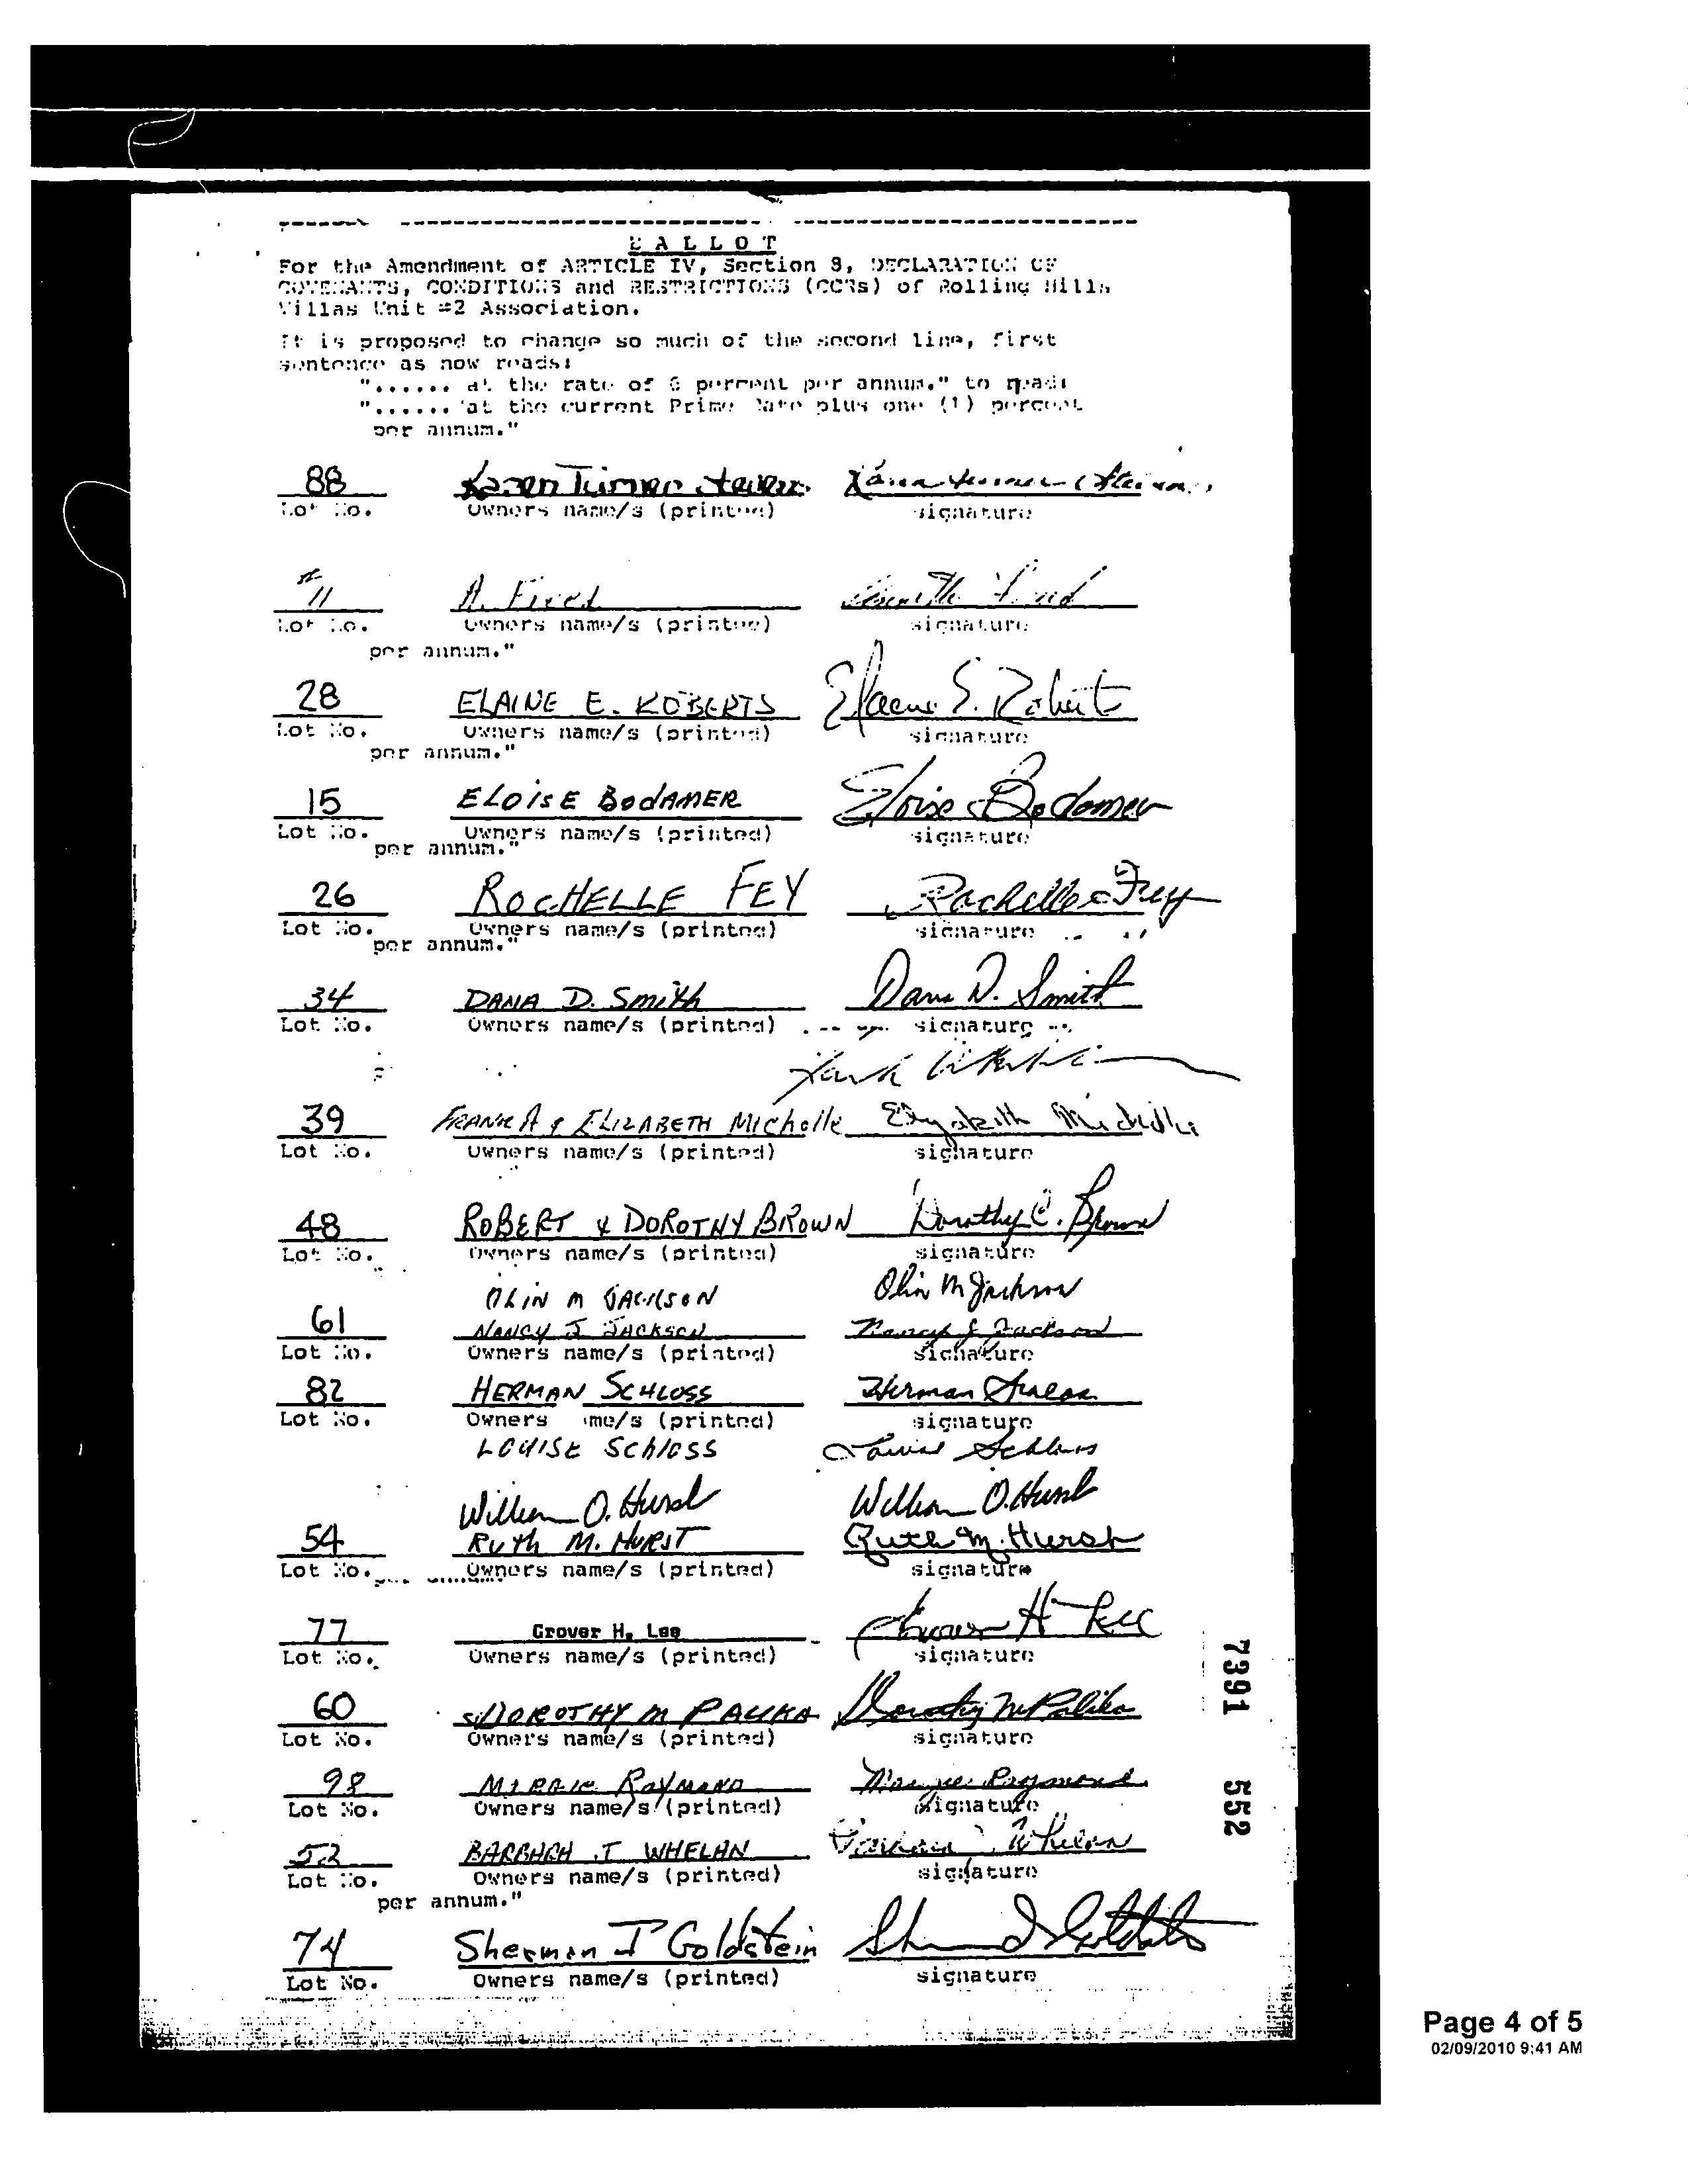 BALLOT
For the Amendment of ARTICLE IV, Section 8, DECLARATION OF
COVENANTS, CONDITIONS and RESTRICTIONS (CCRs) of Rolling Hills
Villas Unit #2 Association.
It is proposed to change so much of the second line, first
sentence as now reads:
"...... at the rate of 6 percent per annum." to read:
"...... at the current Prime Rate plus one (1) percent
per annum."
88 Karen Turner
Lot No. Owners name/s (printed) signature
#11 A.
Lot No. Owners name/s (printed) signature
per annum."
28 ELAINE E. ROBERTS Elaine E. Roberts
Lot No. Owners name/s (printed) signature
per annum."
15 ELOISE BODAMER Eloise Bodamer
Lot No. Owners name/s (printed) signature
per annum."
26 ROCHELLE FEY Rochelle Fey
Lot No. Owners name/s (printed) signature
per annum."
34 DANA D. Smith Dana D. Smith
Lot No. Owners name/s (printed) signature
39 FRANK A & ELIZABETH Michelle Elizabeth Michelle
Lot No. Owners name/s (printed) signature
48 ROBERT & DOROTHY BROWN Dorothy C. Brown
Lot No. Owners name/s (printed) signature
OLIN M JACKSON Olin M Jackson
61 NANCY J JACKSON Nancy J Jackson
Lot No. Owners name/s (printed) signature
82 HERMAN SCHLOSS Herman Schloss
Lot No. Owners me/s (printed) signature
LOUISE SChloSS Louise Schloss
William O. Hurst William O. Hurst
54 RUTH M. HURST Ruth M. Hurst
Lot No. Owners name/s (printed) signature
77 Grover H. Lee Grover H Lee
Lot No. Owners name/s (printed) signature
60 DOROTHY M PALIKA Dorothy M Palika
Lot No. Owners name/s (printed) signature
98 MARGIE RAYMOND Margie Raymond
Lot No. Owners name/s (printed) signature
52 BARBARA J WHELAN Barbara J Whelan
Lot No. Owners name/s (printed) signature
per annum."
74 Sherman J Goldstein
Lot No. Owners name/s (printed) signature
7391 552
Page 4 of 5
02/09/2010 9:41 AM